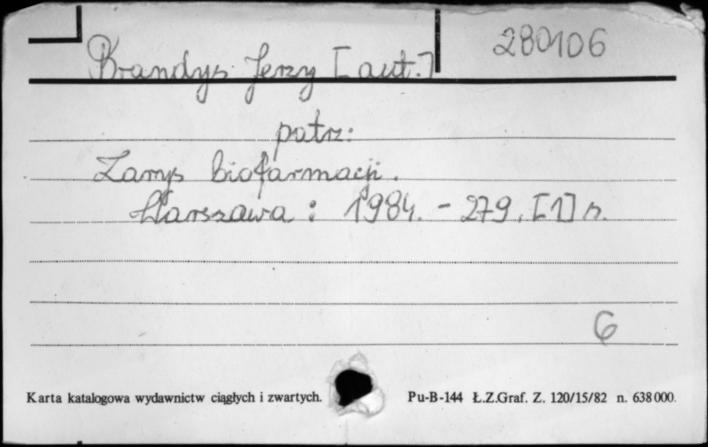 280106
Brandys Jerzy [aut.]
patrz:
Zarys biofarmacji.
Warszawa : 1984. - 279, [1] s.
6
Karta katalogowa wydawnictw ciągłych i zwartych. Pu-B-144 Ł.Z.Graf. Z. 120/15/82 n. 638000.